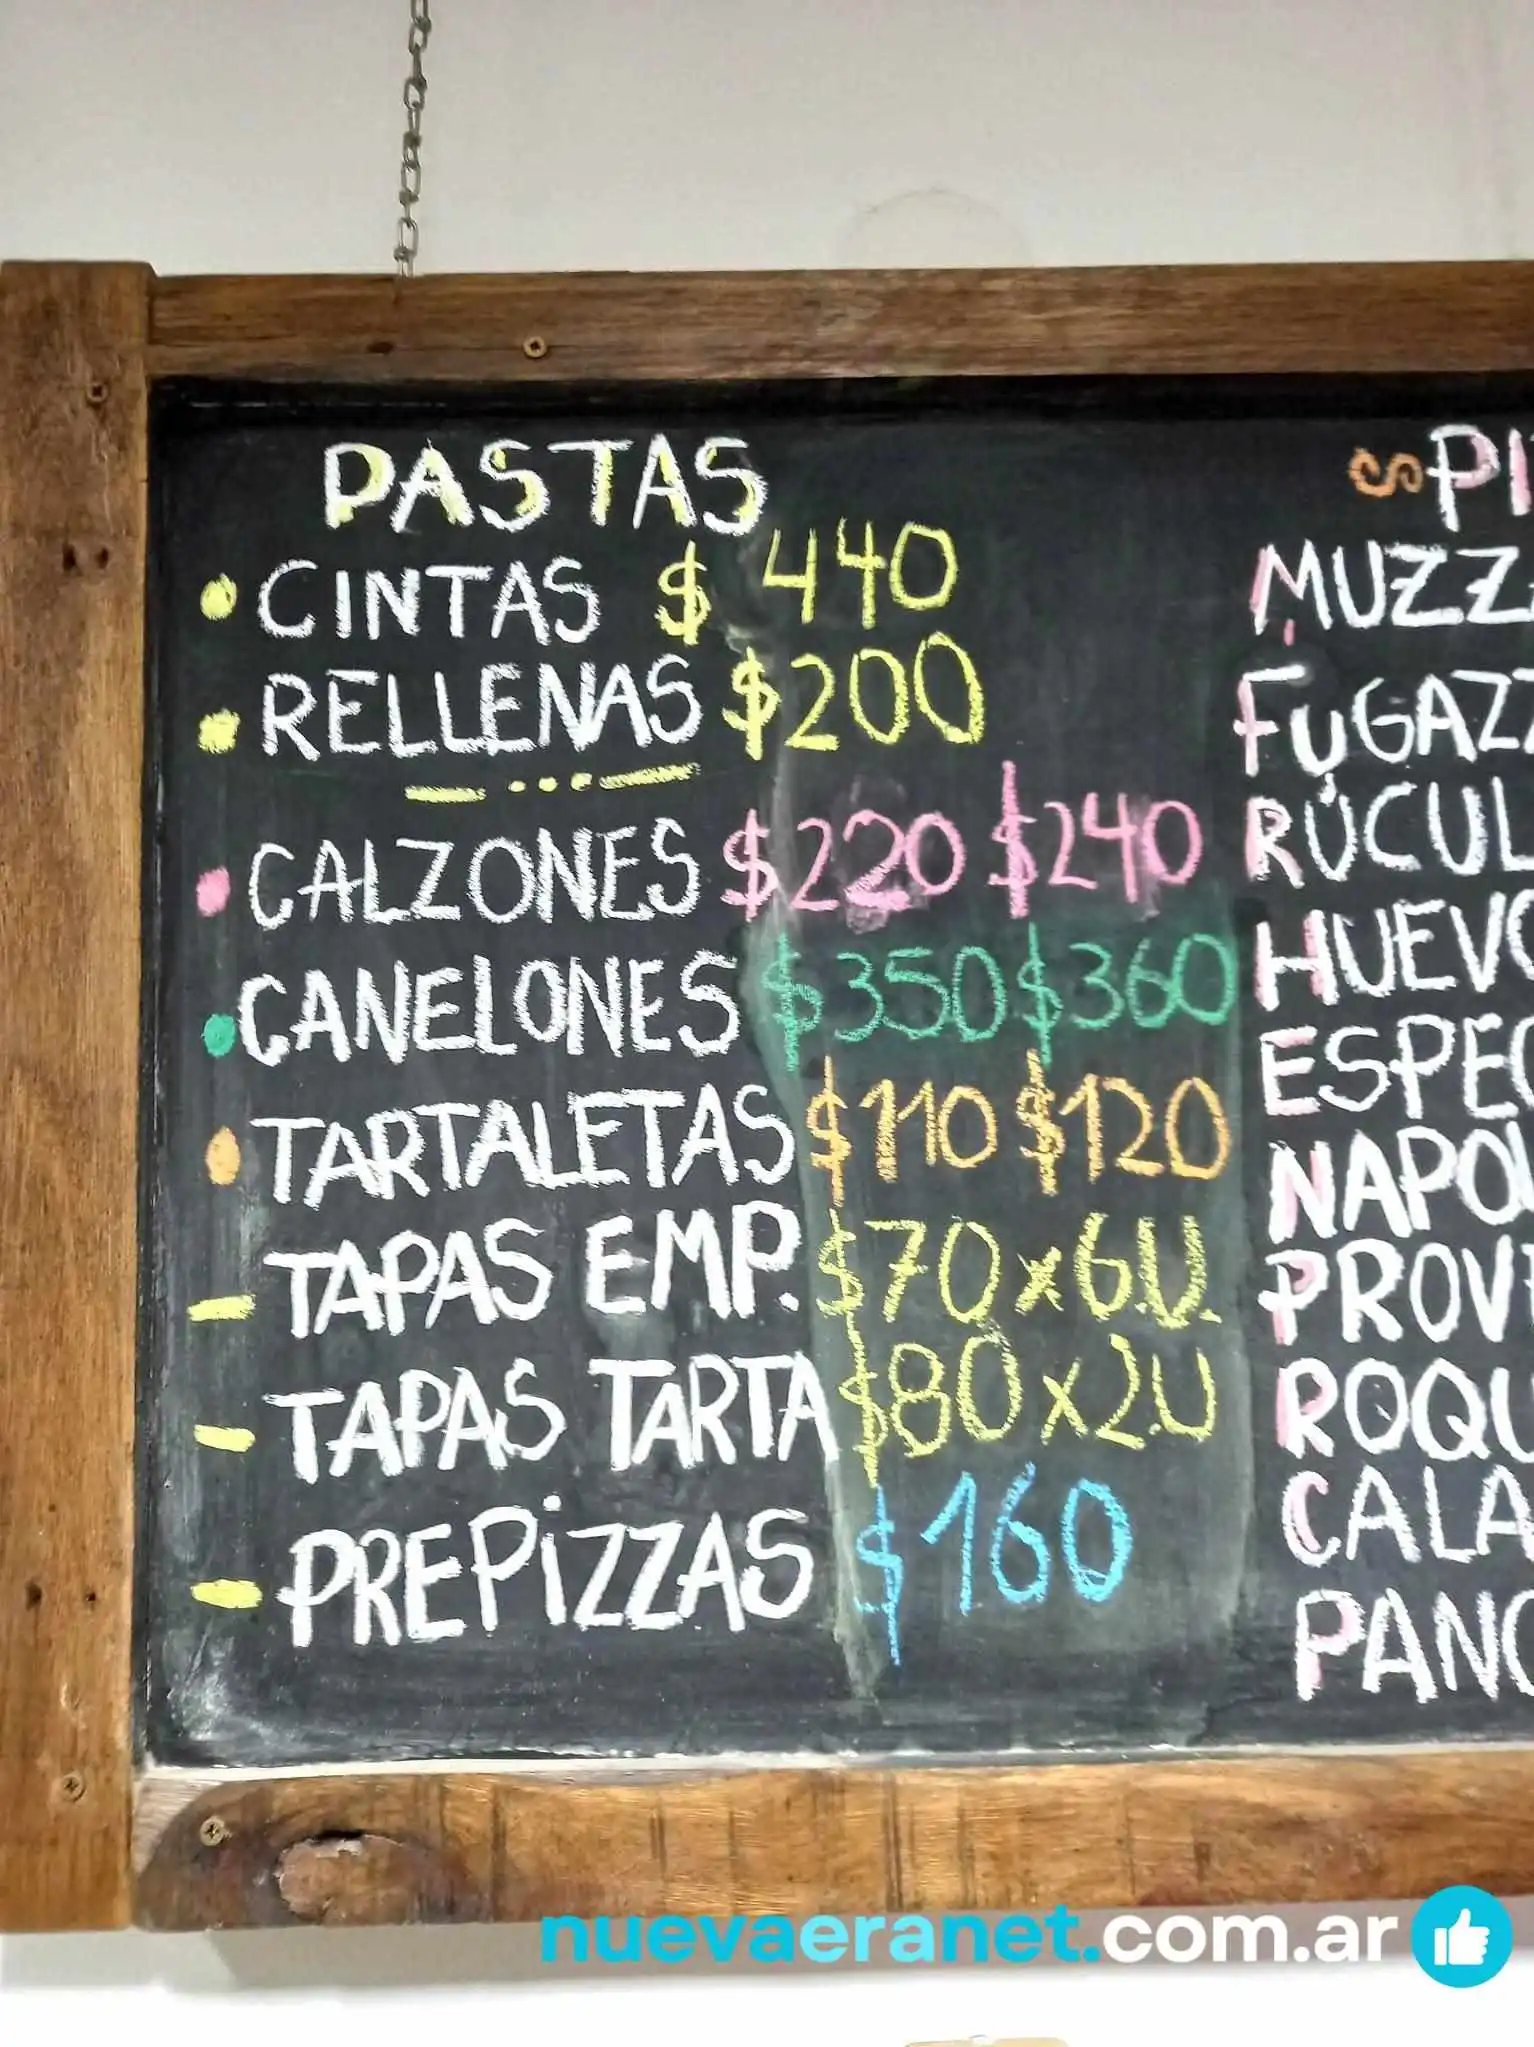 PASTAS
CINTAS $ 440
RELLENAS $200
CALZONES $220 $240
CANELONES $350 $360
TARTALETAS $110 $120
TAPAS EMP. $70 x 6.U.
TAPAS TARTA $80 x 2.U
PREPiZZAS $160
PI
MUZZ
FUGAZZ
RÚCUL
HUEVO
ESPEC
NAPOL
PROV
ROQU
CALA
PANC
nuevaeranet.com.ar